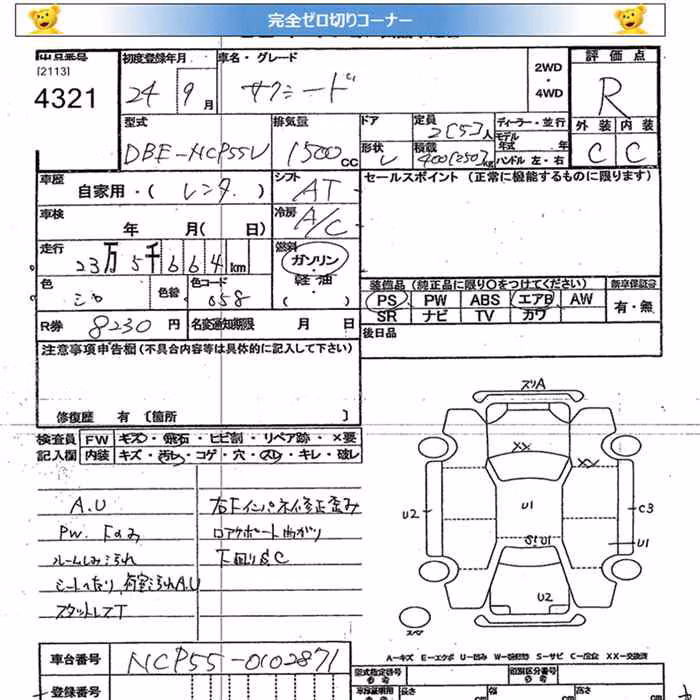 完全ゼロ切りコーナー
出品番号
[2113]
4321
初度登録年月 車名・グレード 評価点
24 9月 サクシード 2WD・4WD R
型式 排気量 ドア 定員 ディーラー・並行 外装 内装
DBE-NCP55V 1500CC 2[5]人 モデル年式 年 C C
形状 V 積載 400[250]kg ハンドル 左・右
車歴 自家用・( レンタ ) シフト AT セールスポイント (正常に機能するものに限ります)
車検 年 月( 日) 冷房 A/C
走行 23万5千664km 燃料 ガソリン・軽油・( )
色 シロ 色替 色コード 058 装備品 (純正品に限り○をつけてください) 新車保証書
PS PW ABS エアB AW 有・無
SR ナビ TV カワ
R券 8230円 名変通知期限 月 日 後日品
注意事項申告欄 (不具合内容等は具体的に記入して下さい)
修復歴 有 〔箇所 〕
検査員 FW キズ・飛石・ヒビ割・リペア跡・×要
記入欄 内装 キズ・汚れ・コゲ・穴・スレ・キレ・破レ
A.U 右Fインパネイ修正歪み
PW. Fのみ コアサポート曲がり
ルームしみ汚れ 下廻りS.C
シートへたり,荷室汚れA.U
スタットレスT
ズリA
XX
XX
U2 U1 C3
S1 U1 U1
U2
スペア
車台番号 NCP55-0102871
A-キズ E-エクボ U-凹み W-波 S-サビ C-腐食 XX-交換済
登録番号 型式指定番号 類別区分番号
長さ 幅 高さ